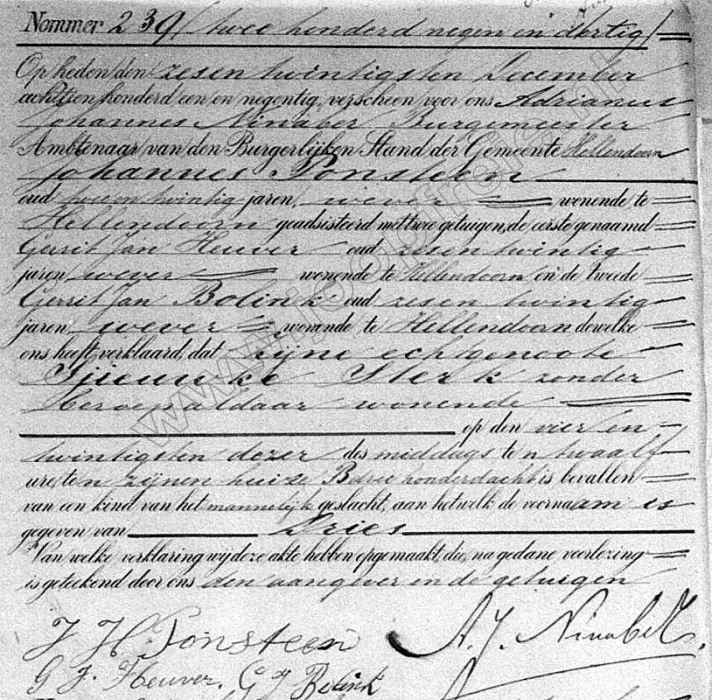 Nommer 239/ twee honderd negen en dertig/
Op heden den zesen twintigsten December
achttien honderd een en negentig, verscheen voor ons Adrianus
Johannes Ninaber Burgemeester
Ambtenaar van den Burgerlijken Stand der Gemeente Hellendoorn
Johannes Ponsteen
oud tweeen twintig jaren, wever wonende te
Hellendoorn geadsisteerd met twee getuigen, de eerste genaamd
Gerrit Jan Heuver oud zesen twintig
jaren wever wonende te Hellendoorn en de tweede
Gerrit Jan Bolink oud zesen twintig
jaren wever wonende te Hellendoorn dewelke
ons heeft verklaard, dat zijne echtgenoote
Sterk zonder
beroep aldaar wonende
op den vier en
twintigsten dezer des middags ten twaalf
ure, ten zijnen huize B drie honderd acht is bevallen
van een kind van het mannelijk geslacht, aan hetwelk de voornaam is
gegeven van Dries
Van welke verklaring wij deze akte hebben opgemaakt, die, na gedane voorlezing
is geteekend door ons den aangever en de getuigen
J H Ponsteen A. J. Ninaber.
G J Heuver. G J Bolink